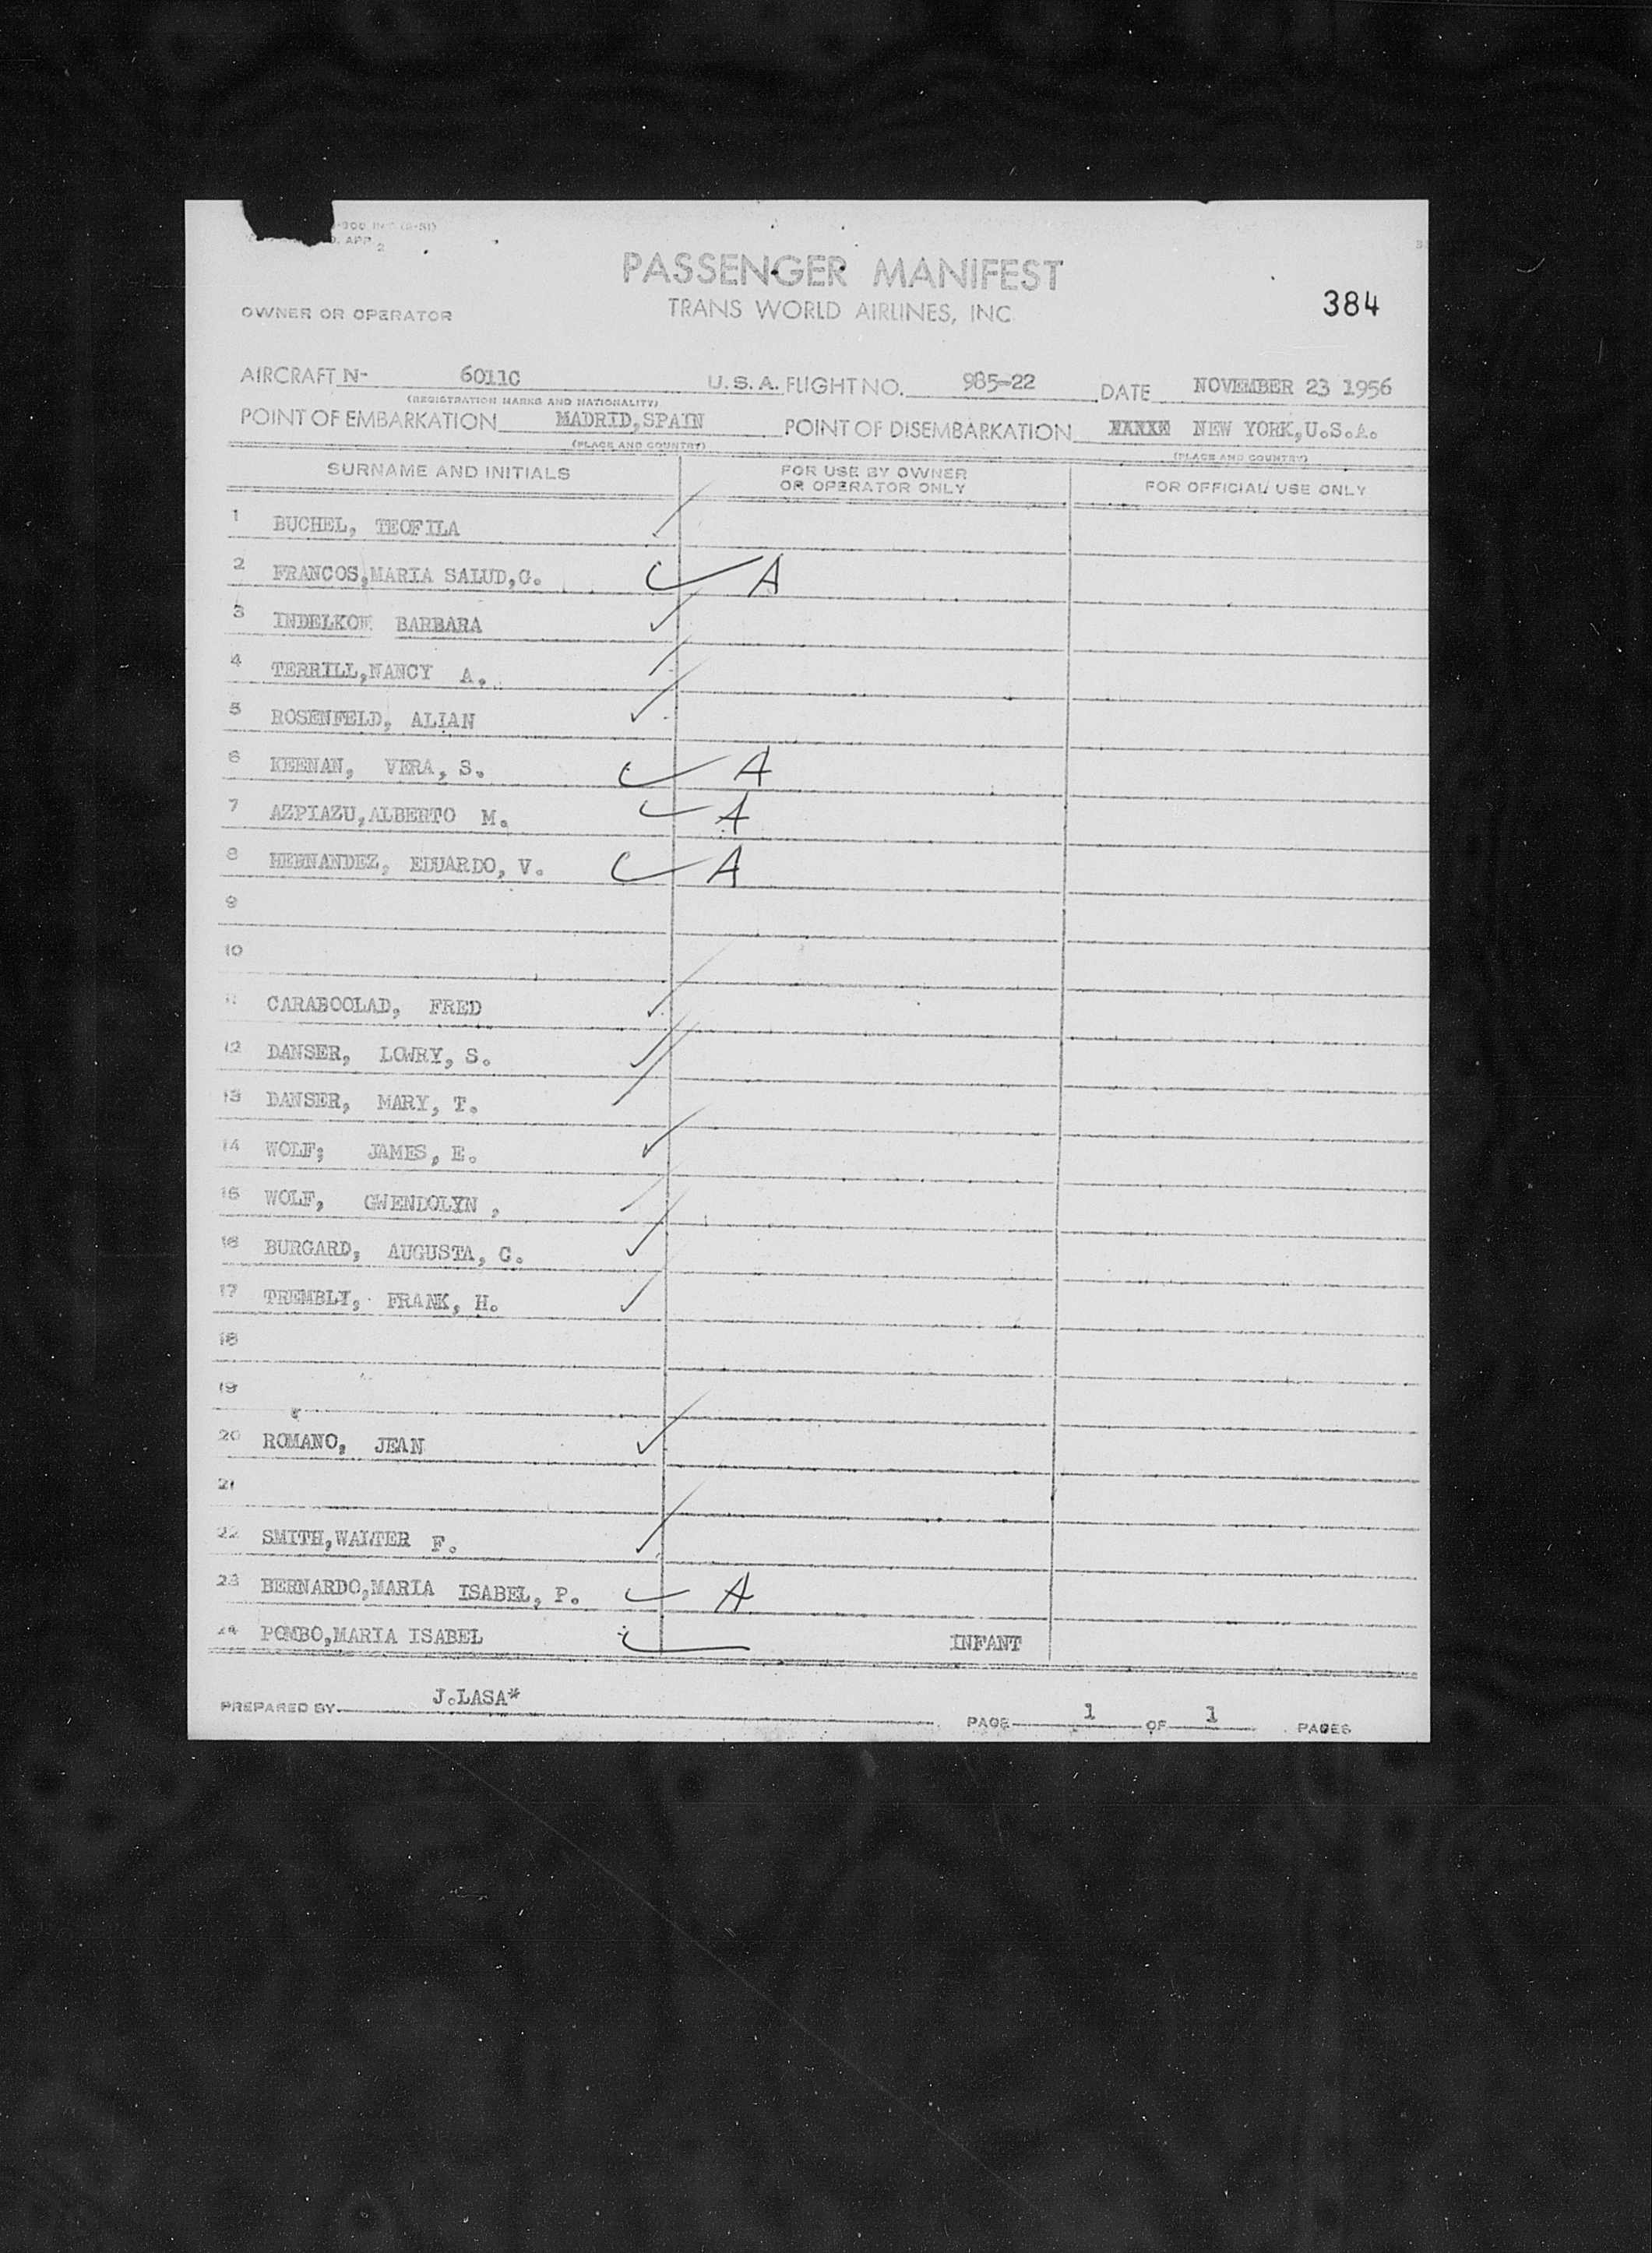 PASSENGER MANIFEST
OWNER OR OPERATOR TRANS WORLD AIRLINES, INC. 384
AIRCRAFT N- 6011C U.S.A. FLIGHT NO. 985-22 DATE NOVEMBER 23 1956
(REGISTRATION MARKS AND NATIONALITY)
POINT OF EMBARKATION MADRID,SPAIN POINT OF DISEMBARKATION NEW YORK,U.S.A.
(PLACE AND COUNTRY) (PLACE AND COUNTRY)
SURNAME AND INITIALS FOR USE BY OWNER OR OPERATOR ONLY FOR OFFICIAL USE ONLY
1 BUCHEL, TEOFILA
2 FRANCOS,MARIA SALUD,G. A
3 INDELKOW BARBARA
4 TERRILL,NANCY A.
5 ROSENFELD, ALIAN
6 KEENAN, VERA, S. A
7 AZPIAZU,ALBERTO M. A
8 HERNANDEZ, EDUARDO, V. A
9
10
11 CARABOOLAD, FRED
12 DANSER, LOWRY, S.
13 DANSER, MARY, T.
14 WOLF; JAMES, E.
15 WOLF, GWENDOLYN ,
16 BURGARD, AUGUSTA, C.
17 TREMBLY, FRANK, H.
18
19
20 ROMANO, JEAN
21
22 SMITH,WALTER F.
23 BERNARDO,MARIA ISABEL, P. A
24 POMBO,MARIA ISABEL INFANT
PREPARED BY J.LASA* PAGE 1 OF 1 PAGES